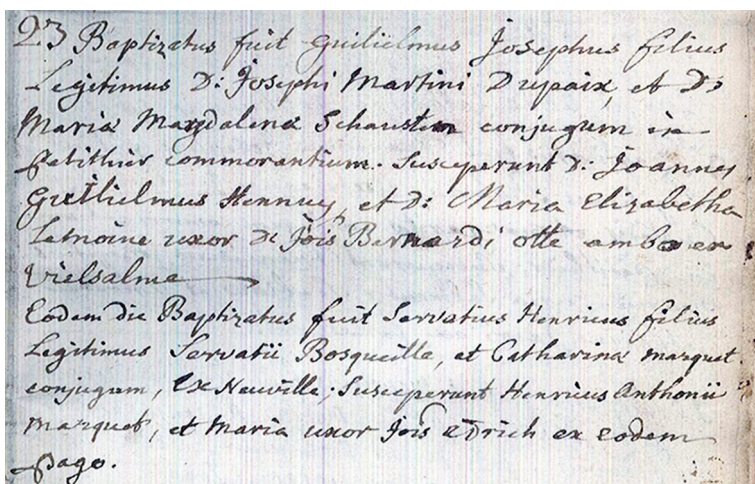 23 Baptizatus fuit Guilielmus Josephus filius
Legitimus D: Josephi Martini Dupaix, et D:
Mariæ Magdalenæ Schausten conjugum in
petithier commorantium. Susceperunt D: Joannes
Guilielmus Hennuy, et D: Maria Elizabetha
Lemoine uxor D: Jois Bernardi otte ambo ex
vielsalme
Eodem die Baptizatus fuit Servatius Henricus filius
Legitimus Servatii Bosqueille, et Catharinæ marquet
conjugum, Ex Neuville; Susceperunt Henricus Anthonii
marquet, et Maria uxor Jois ex eodem
pago.